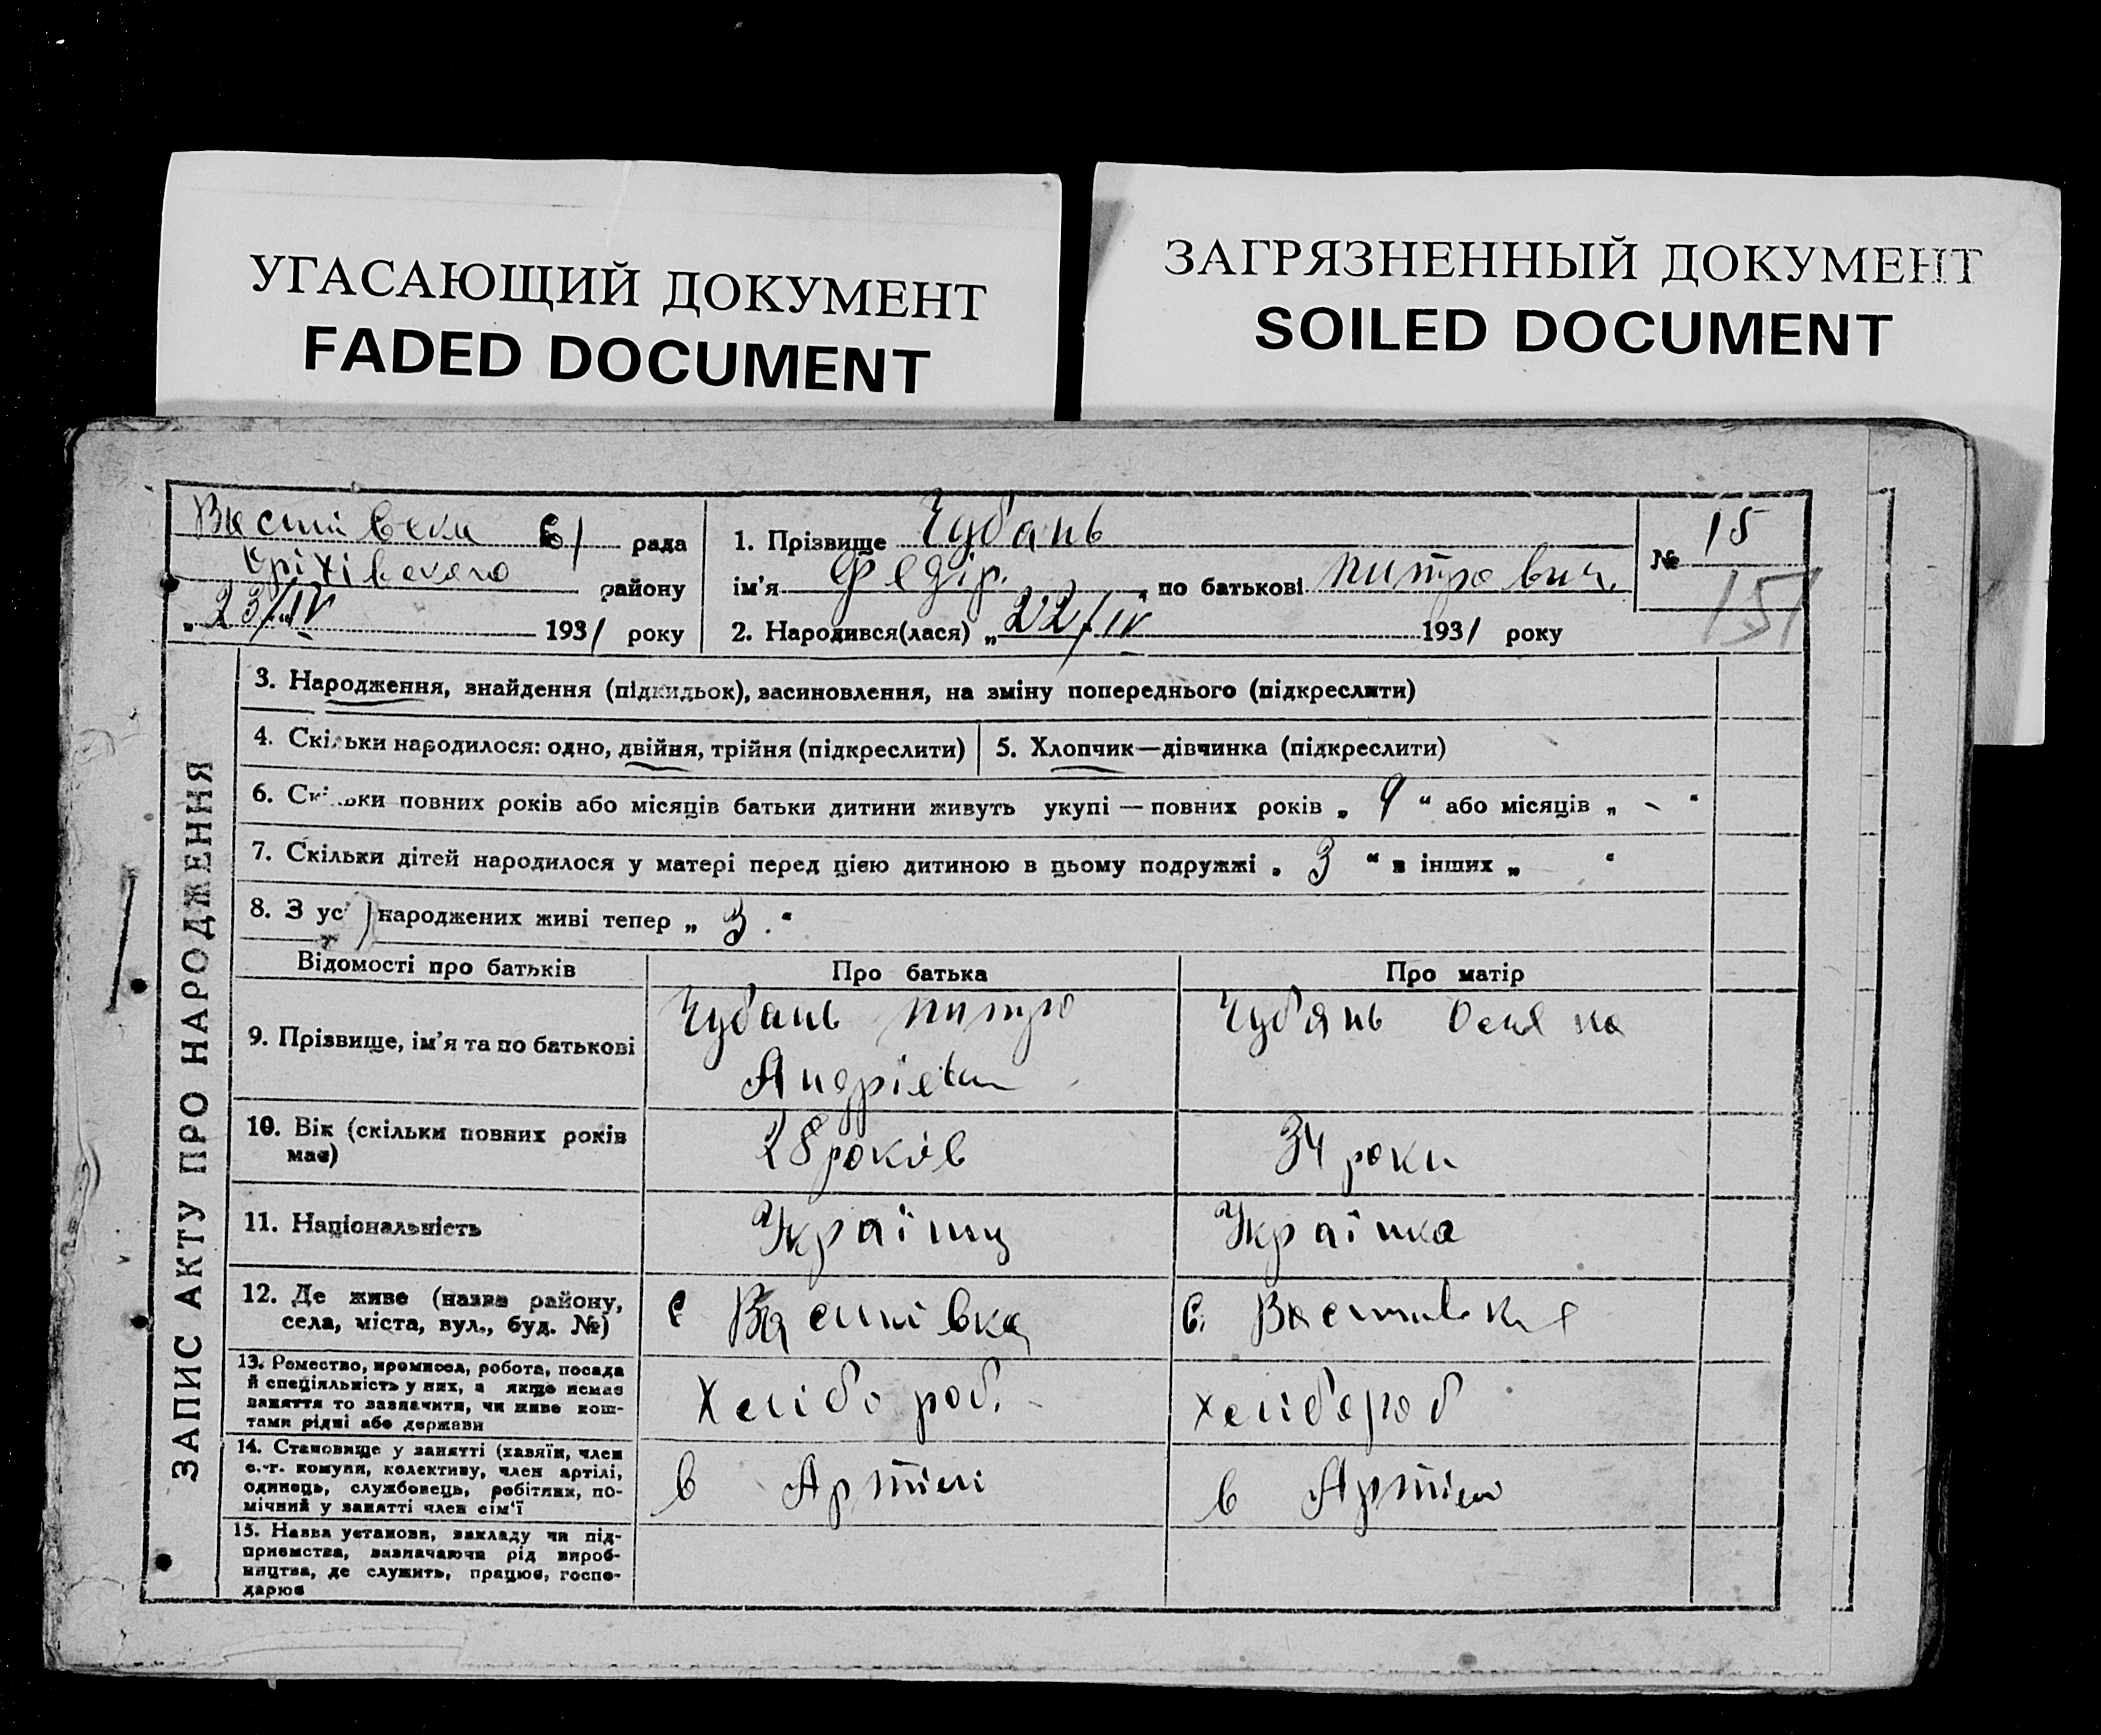 УГАСАЮЩИЙ ДОКУМЕНТ
FADED DOCUMENT
ЗАГРЯЗНЕННЫЙ ДОКУМЕНТ
SOILED DOCUMENT
рада
Оріхівского району
„ 23/IV 1931 року
1. Прізвище Чубань
ім’я Федір. , по батькові Питрович.
2. Народився(лася) „ 22/IV 1931 року
№ 15
151
ЗАПИС АКТУ ПРО НАРОДЖЕННЯ
3. Народження, знайдення (підкидьок), васиновлення, на зміну попереднього (підкреслити)
4. Скільки народилося: одно, двійня, трійня (підкреслити)
5. Хлопчик—дівчинка (підкреслити)
6. Скільки повних років або місяців батьки дитини живуть укупі — повних років „ 9 “ або місяців „ - “
7. Скільки дітей народилося у матері перед цією дитиною в цьому подружжі „ 3 “ в інших „ “
8. З ус народжених живі тепер „ 3 . “
Відомості про батьків
Про батька
Про матір
9. Прізвище, ім’я та по батькові
Чубань Питро
Чубань
10. Вік (скільки повних років
має)
28 років
34 роки
11. Національність
Українц
Українка
12. Де живе (назва району,
села, міста, вул., буд. №)
с Василівка
с. Василивка
13. Ремество, промисел, робота, посада
й спеціяльність у них, а якщо немає
заняття то зазначити, чи живе кош-
тами рідні або держави
Хлібороб.
хлібороб
14. Становище у занятті (хазяїн, член
с.-г. комуни, колективу, член артілі,
одинець, службовець, робітник, по-
мічний у занятті член сім’ї
в Артілі
в Артіли
15. Назва установи, закладу чи під-
приємства, зазначаючи рід вироб-
ництва, де служить, працює, госпо-
дарює